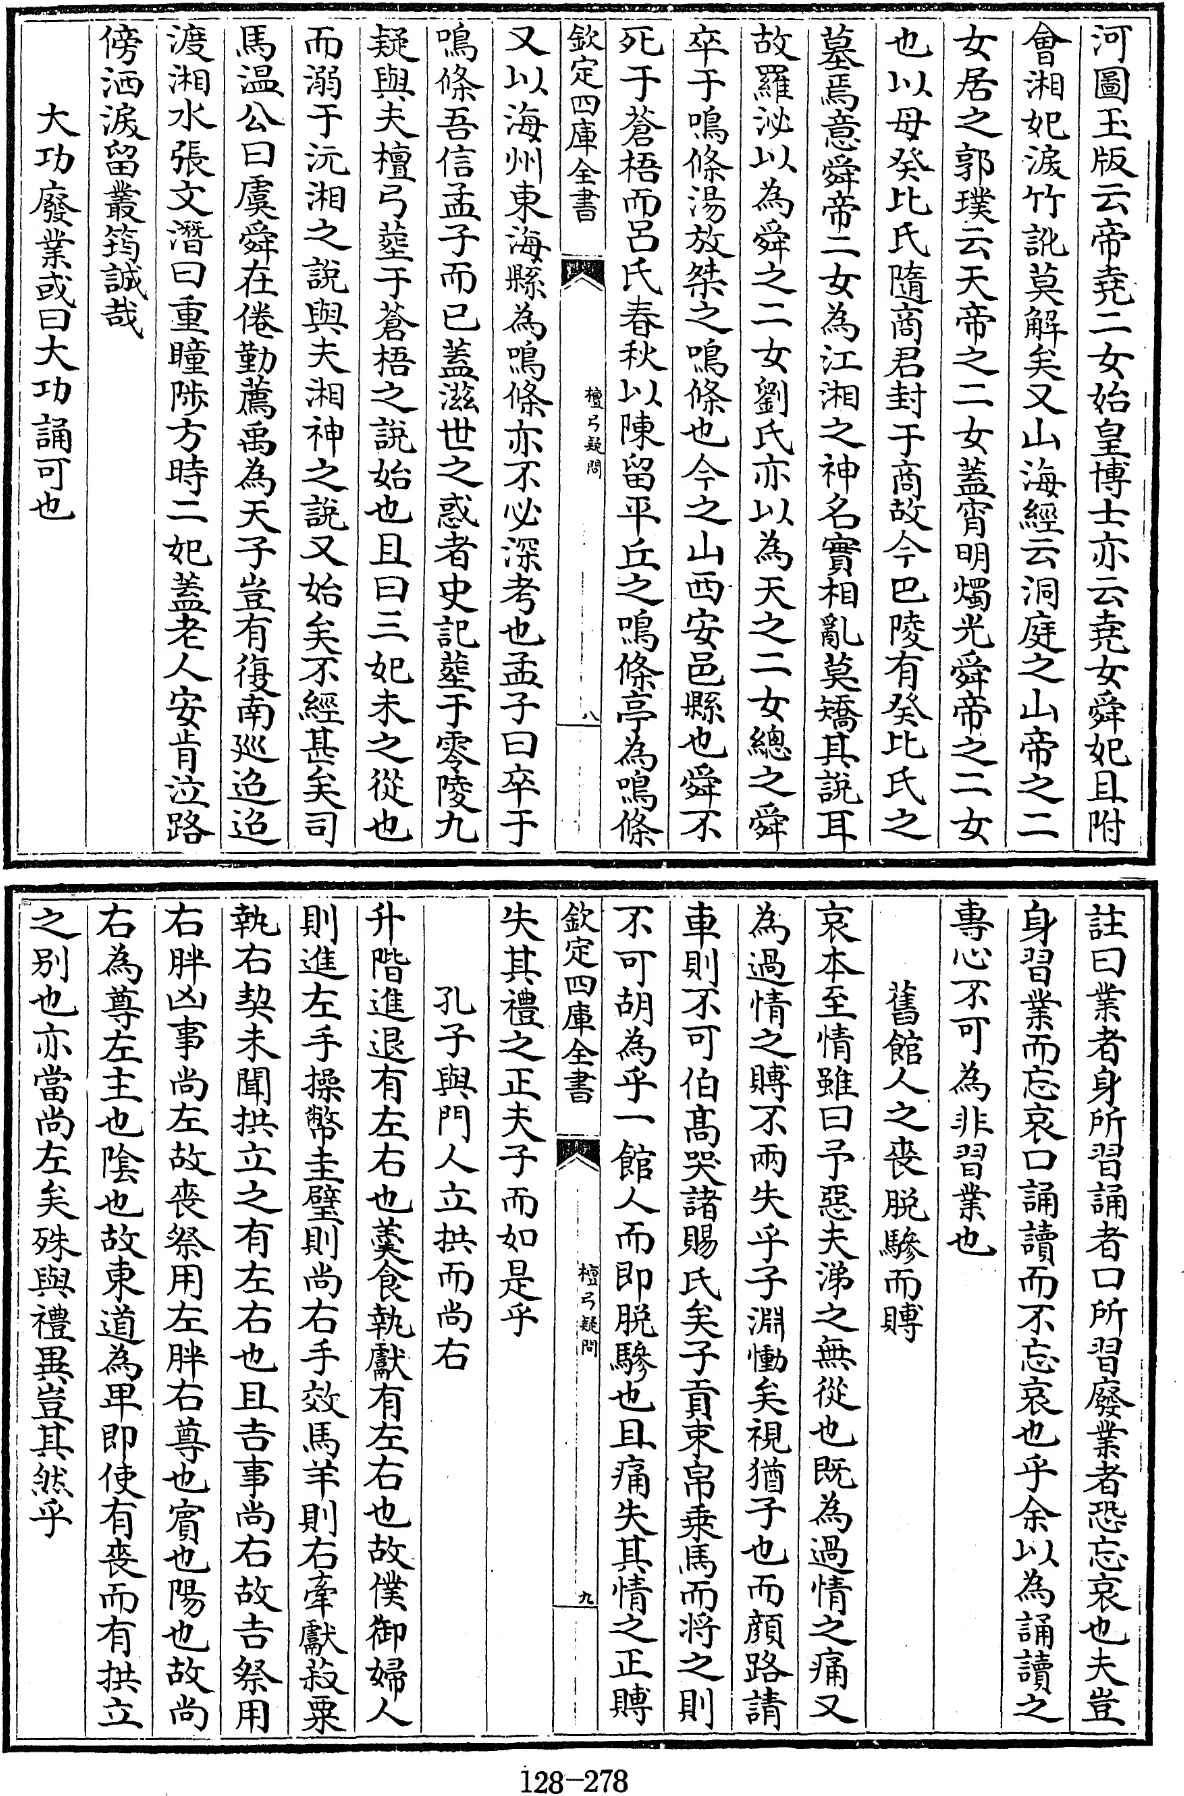 河圖玉版云帝堯二女始皇博士亦云堯女舜妃且附
會湘妃淚竹訛莫解矣又山海經云洞庭之山帝之二
女居之郭璞云天帝之二女蓋宵明燭光舜帝之二女
也以母癸比氏隨商君封于商故今巴陵有癸比氏之
墓焉意舜帝二女為江湘之神名實相亂莫矯其說耳
故羅泌以為舜之二女劉氏亦以為天之二女總之舜
卒于鳴條湯放桀之鳴條也今之山西安邑縣也舜不
死于蒼梧而呂氏春秋以陳留平丘之鳴條亭為鳴條
欽定四庫全書
檀弓疑問
八
又以海州東海縣為鳴條亦不必深考也孟子曰卒于
鳴條吾信孟子而已蓋滋世之惑者史記塟于零陵九
疑與夫檀弓塟于蒼梧之說始也且曰三妃未之從也
而溺于沅湘之說與夫湘神之說又始矣不經甚矣司
馬温公曰虞舜在倦勤薦禹為天子豈有復南廵迢迢
渡湘水張文潛曰重瞳陟方時二妃蓋老人安肯泣路
傍洒淚留叢筠誠哉
大功廢業或曰大功誦可也
註曰業者身所習誦者口所習廢業者恐忘哀也夫豈
身習業而忘哀口誦讀而不忘哀也乎余以為誦讀之
專心不可為非習業也
舊館人之喪脱驂而賻
哀本至情雖曰予惡夫涕之無從也既為過情之痛又
為過情之賻不兩失乎子淵慟矣視猶子也而顔路請
車則不可伯髙哭諸賜氏矣子貢束帛乗馬而将之則
不可胡為乎一館人而即脱驂也且痛失其情之正賻
欽定四庫全書
檀弓疑問
九
失其禮之正夫子而如是乎
孔子與門人立拱而尚右
升階進退有左右也羮食執獻有左右也故僕御婦人
則進左手操幣圭璧則尚右手效馬羊則右牽獻菽粟
執右契未聞拱立之有左右也且吉事尚右故吉祭用
右胖凶事尚左故喪祭用左胖右尊也賔也陽也故尚
右為尊左主也陰也故東道為卑即使有喪而有拱立
之别也亦當尚左矣殊與禮異豈其然乎
128-278